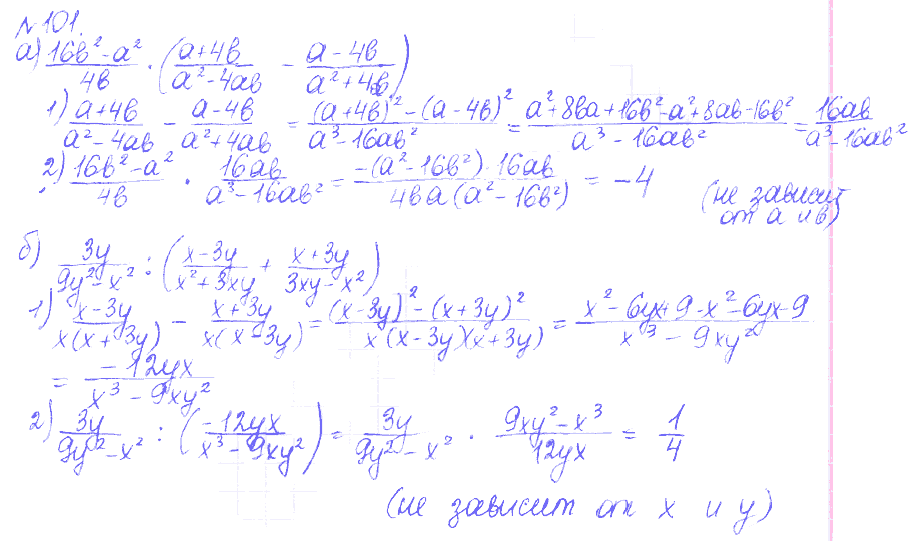 №101.
а) (16в² - а²)/(4в) · ((а+4в)/(а² - 4ав) - (а - 4в)/(а² + 4в))
1) (а+4в)/(а² - 4ав) - (а - 4в)/(а² + 4ав) = ((а+4в)² - (а - 4в)²)/(а³ - 16ав²) = (а² + 8ва + 16в² - а² + 8ав - 16в²)/(а³ - 16ав²) = (16ав)/(а³ - 16ав²)
2) (16в² - а²)/(4в) · (16ав)/(а³ - 16ав²) = (-(а² - 16в²) · 16ав)/(4ва(а² - 16в²)) = -4
(не зависит
от а и в)
б) (3y)/(9y² - x²) : ((x - 3y)/(x² + 3xy) + (x + 3y)/(3xy - x²))
1) (x - 3y)/(x(x + 3y)) - (x + 3y)/(x(x - 3y)) = ((x - 3y)² - (x + 3y)²)/(x(x - 3y)(x + 3y)) = (x² - 6yx + 9 - x² - 6yx - 9)/(x³ - 9xy²)
= (-12yx)/(x³ - 9xy²)
2) (3y)/(9y² - x²) : ((-12yx)/(x³ - 9xy²)) = (3y)/(9y² - x²) · (9xy² - x³)/(12yx) = 1/4
(не зависит от x и y)